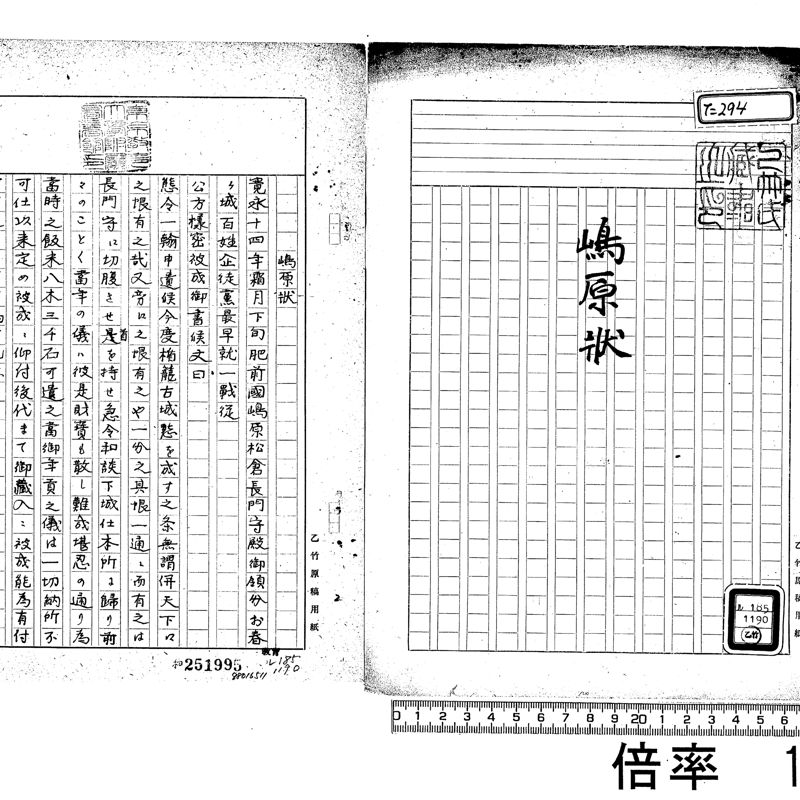 T=294
嶋原状
ル 185
1190
乙竹
乙竹原稿用紙
嶋原状
寛永十四年霜月下旬肥前國嶋原松倉長門守殿御領分お春
々城百姓企徒黨最早就一戰従
公方様密被成御書候文曰
態令一翰申遣候今度楯籠古城態を成す之条無謂併天下に
之恨有之哉又旁に之恨有之や一分之具恨一通ニ而有之は
長門守に切腹させ是を持せ急令和談下城仕本所に歸り前
首
々のことく當年の儀ハ彼是財寶も散し難成堪忍の通り為
當時之飯米八木三千石可遣之當御年貢之儀は一切納所不
可仕以来定の被成ニ仰付後代まて御藏入ニ被成能為有付
乙竹原稿用紙
和251995
教育
ル185
1190
88016511
0 1 2 3 4 5 6 7 8 9 20 1 2 3 4 5 6
倍率 1